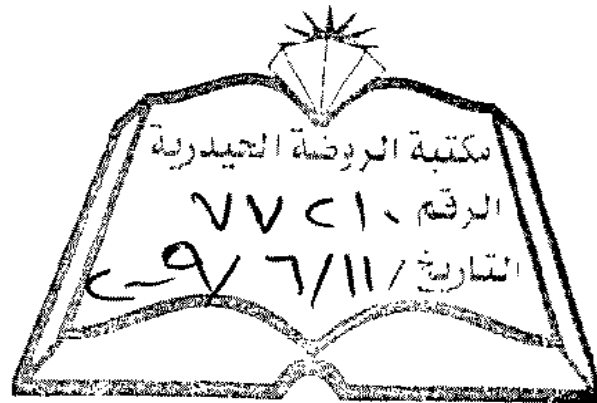 مكتبة الروضة الحيدرية
الرقم ٧٧٢١٠
التاريخ / ١١/ ٦/ ٢٠٠٩